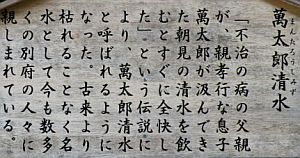 萬太郎清水
まんたろうしみず
「不治の病の父親
が、親孝行な息子
萬太郎が汲んでき
た朝見の清水を飲
むとすぐに全快し
た」という伝説に
より、萬太郎清水
と呼ばれるように
なった。古来より
枯れることなく名
水として今も数多
くの別府の人々に
親しまれている。